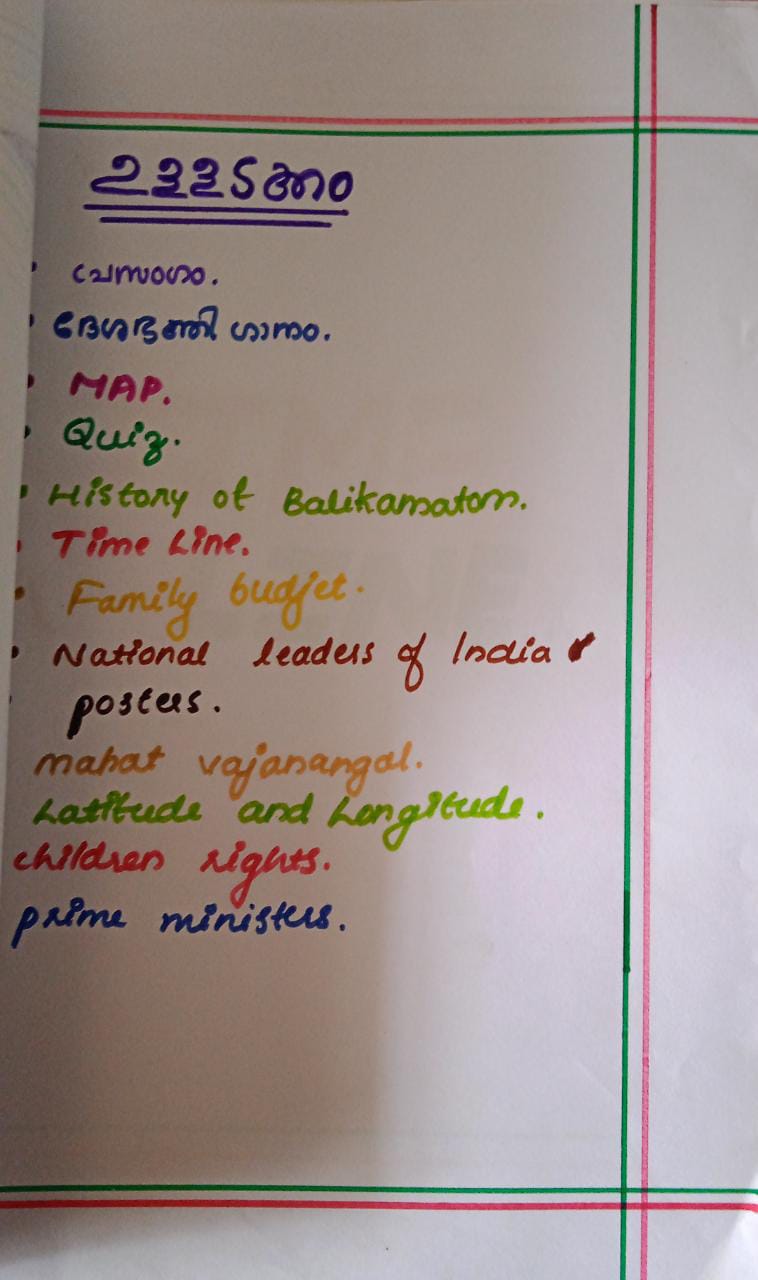 ഉള്ളടക്കം
പ്രസംഗം.
ദേശഭക്തി ഗാനം.
MAP.
Quiz.
History of Balikamatom.
Time Line.
Family budjet.
National leaders of India
posters.
mahat vajanangal.
Latitude and Longitude.
children rights.
prime ministers.